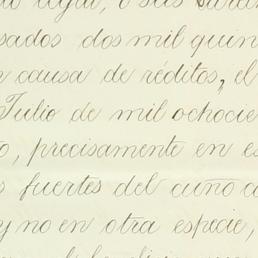 o sus
sados dos mil quin
causa de réditos, el
Julio de mil ochocie
o, precisamente en es
s fuertes del cuño c
y no en otra especie,